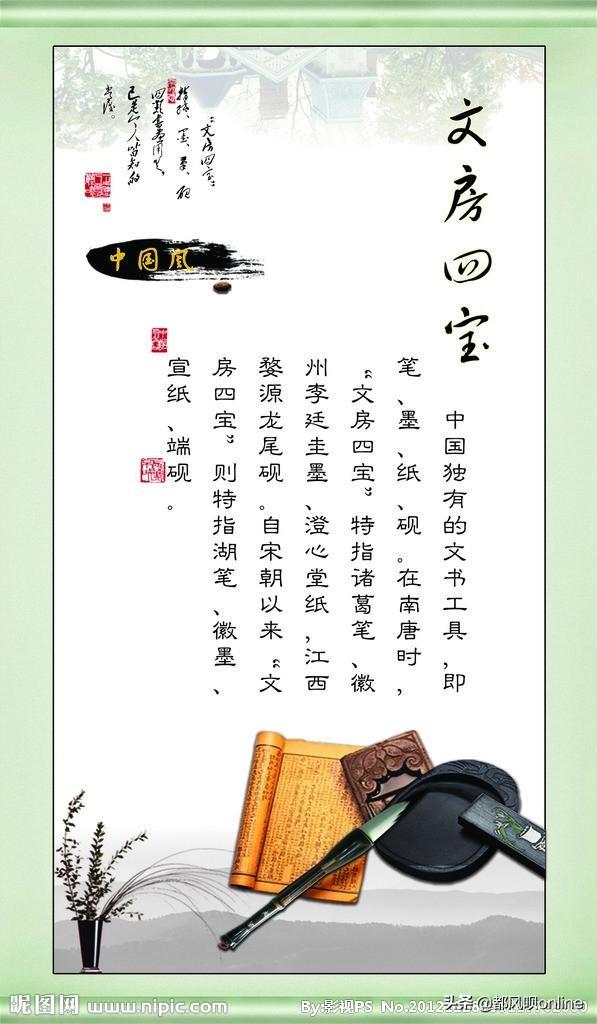 文房四宝
中国独有的文书工具,即
笔、墨、纸、砚。在南唐时,
“文房四宝”特指诸葛笔、徽
州李廷圭墨、澄心堂纸,江西
婺源龙尾砚。自宋朝以来“文
房四宝”则特指湖笔、徽墨、
宣纸、端砚。
“文房四宝”
中国风
昵图网 www.nipic.com
By:影视PS No.20122
头条@都风呗online